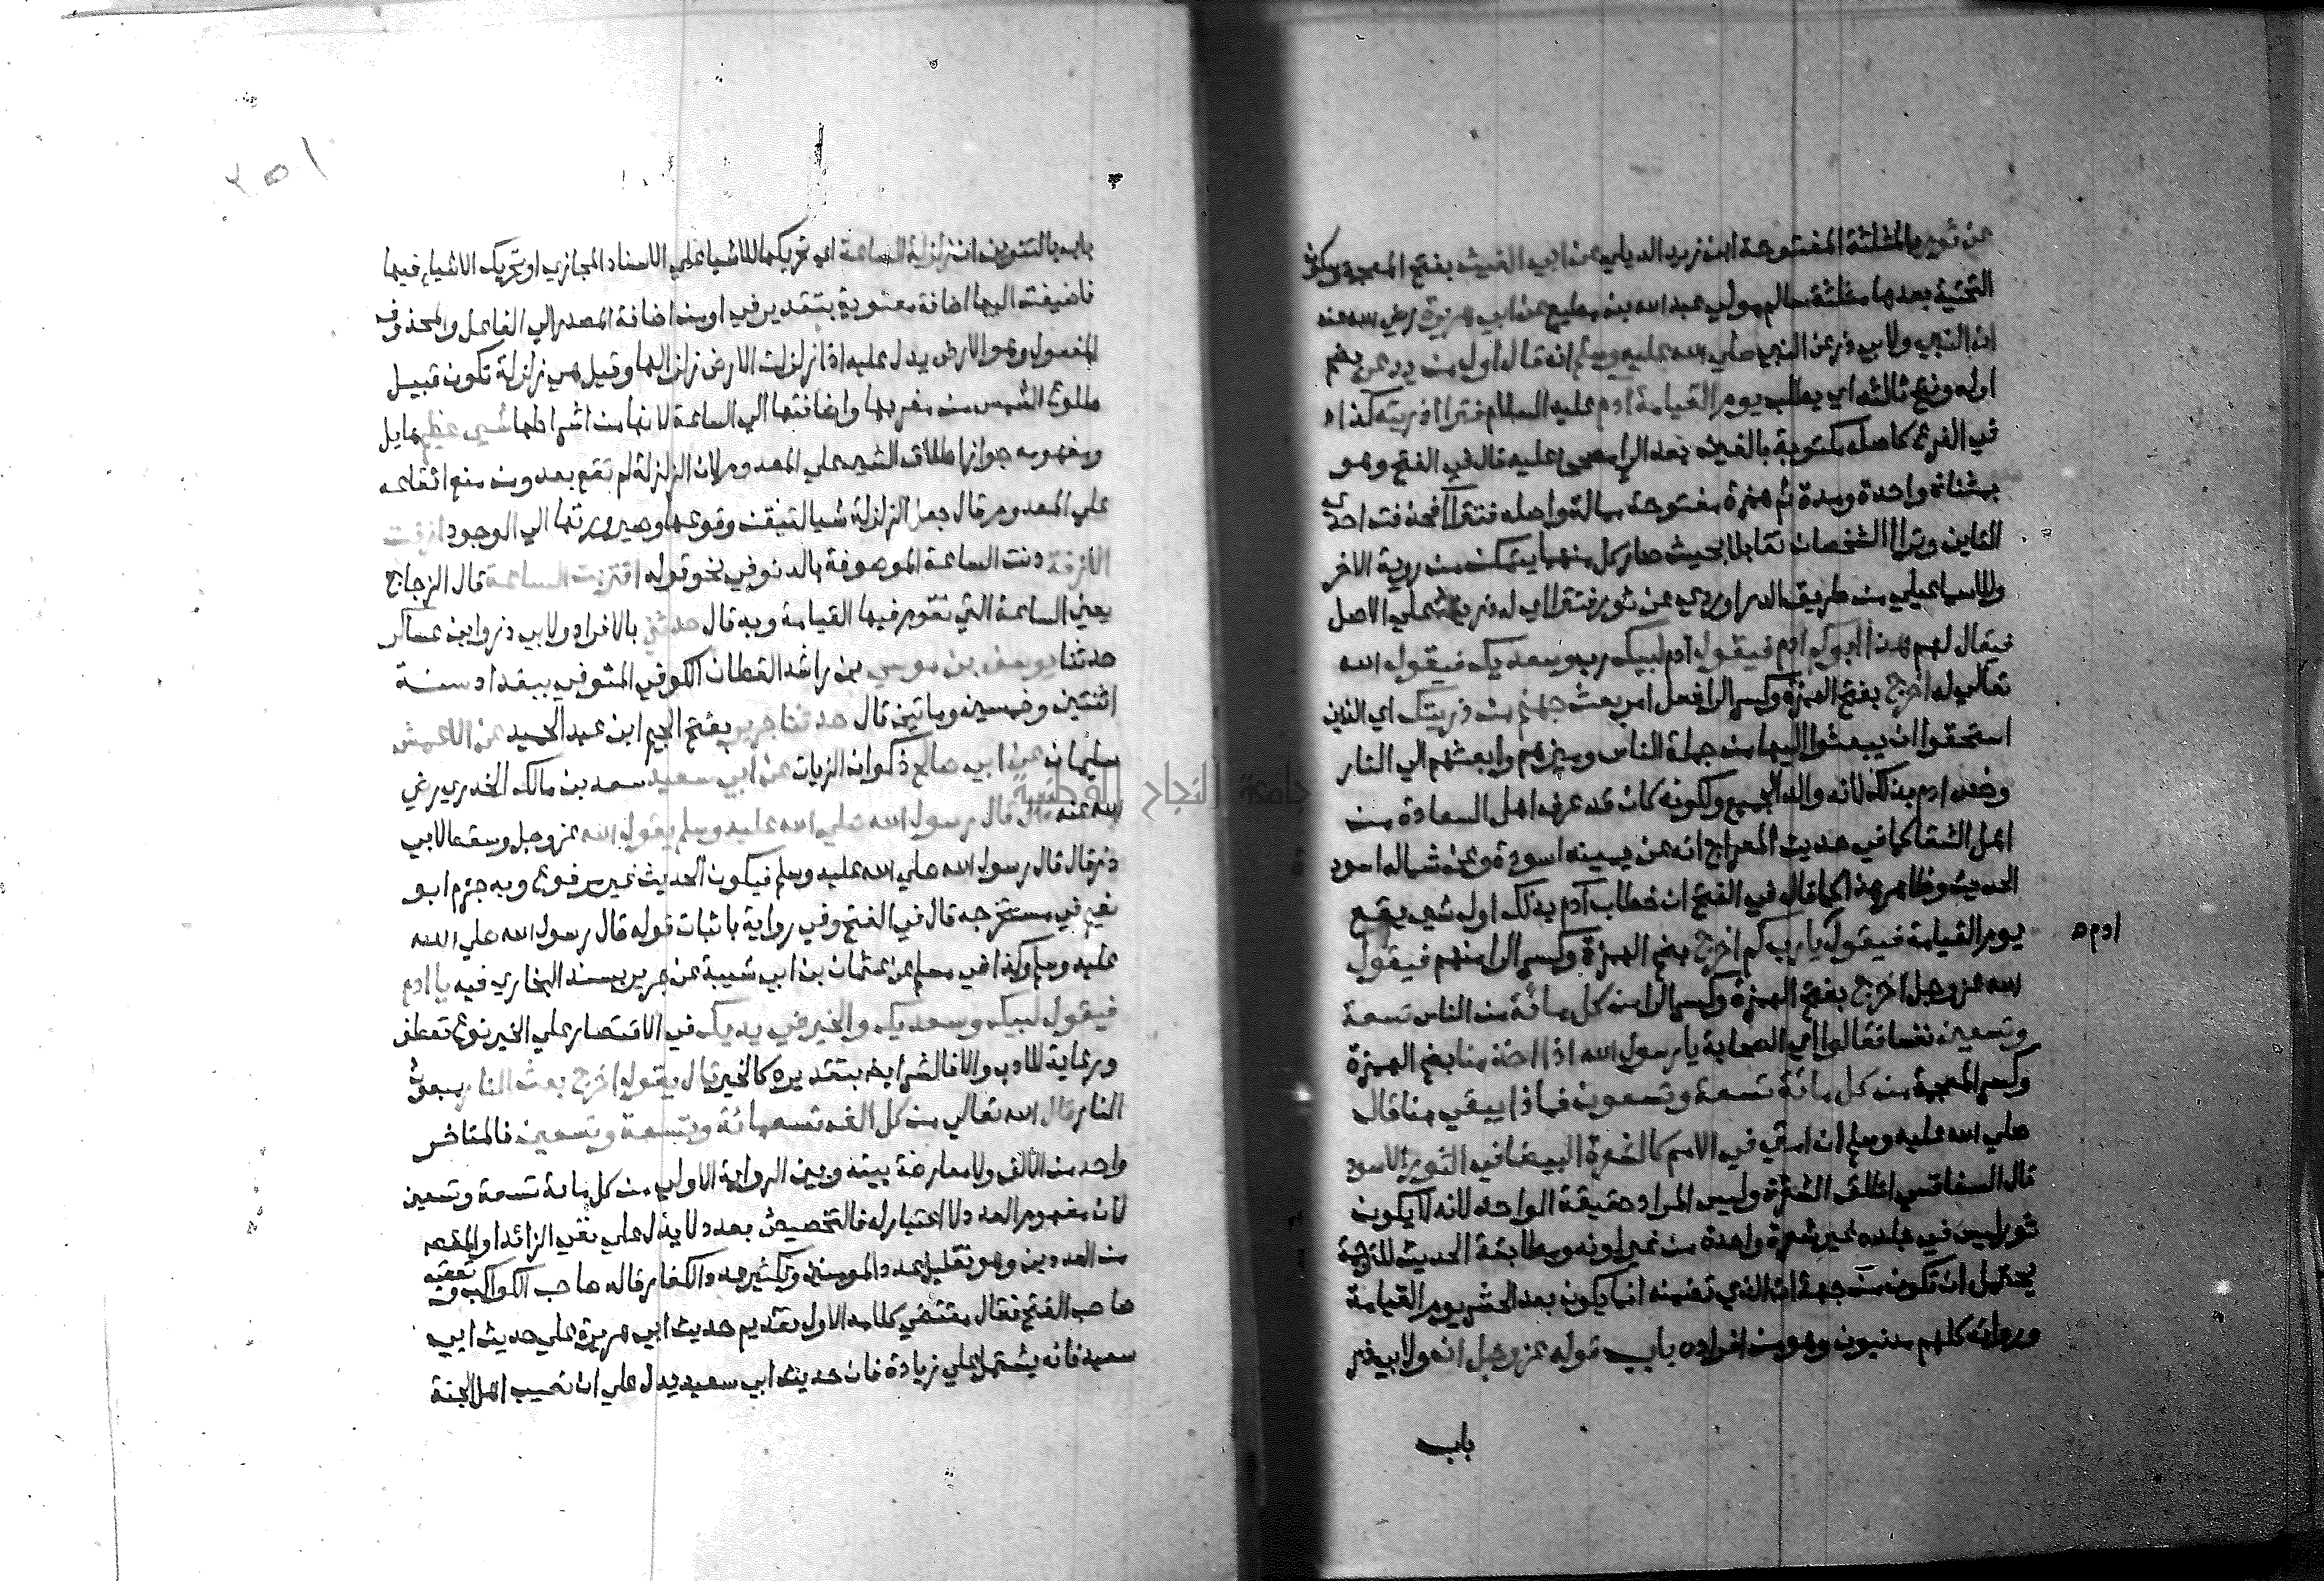 عن ثور بالمثلثة المفتوحة ابن زيد الديلي عن ابي الغيث بفتح المعجمة وسكون
التحتية بعدها مثلثة سالم مولي عبد الله بن مطيع عن ابي هريرة رضي الله عنه
ان النبي ولابي ذر عن النبي صلي الله عليه وسلم انه قال اول من يدعي بضم
اوله وفتح ثالثه اي يطلب يوم القيامة ادم عليه السلام فتراا ذريته كذا
في الفرع كاصله مكتوبة بالفين بعد الرا عليه قال في الفتح وهو
بمثناة واحدة ومدة ثم همزة مفتوحة ممالة واصله فتتراا فحذفت احدي
التاين وتراا الشخصان تقابلا بحيث صار كل منهما يتمكن من روية الاخر
وللاسماعيلي من طريق الدراوردي عن ثور فتتراا له ذريته علي الاصل
فيقال لهم هذا ابوكم ادم فيقول ادم لبيك رب وسعديك فيقول الله
تعالي له اخرج بفتح الهمزة وكسر الرا فعل امر بعث جهنم من ذريتك اي الذين
استحقوا ان يبعثوا اليها من جملة الناس وميزهم وابعثهم الي النار
وخص ادم بذلك لانه والد الجميع ولكونه كان قد عرف اهل السعادة من
اهل الشقا كما في حديث المعراج انه عن يمينه اسودة وعن شماله اسودة
الحديث وظاهر هذا كما قال في الفتح ان خطاب آدم بذلك اول شي يقع
يوم القيامة فيقول يا رب كم اخرج بضم الهمزة وكسر الرا منهم فيقول
ادم
الله عز وجل اخرج بفتح الهمزة وكسر الرا من كل مائة من الناس تسعة
وتسعين نفسا فقالوا اي الصحابة يا رسول الله اذا اخذ منا بضم الهمزة
وكسر المعجمة من كل مائة تسعة وتسعون فماذا يبقي منا قال
صلي الله عليه وسلم ان امتي في الامم كالشعرة البيضا في الثور الاسود
قال السفاقسي اطلق الشعرة وليس المراد حقيقة الواحد لانه لا يكون
ثور ليس في جلده غير شعرة واحدة من غير لونه ومطابقة الحديث للترجمة
يحتمل ان تكون من جهة ان الذي تضمنه انما يكون بعد الحشر يوم القيامة
ورواته كلهم مدنيون وهو من افراده باب قوله عز وجل ان ولابي ذر
باب
باب بالتنوين ان زلزلة الساعة اي تحريكها للاشيا علي الاسناد المجازي او تحريك الاشيا فيها
فاضيفت اليها اضافة معنوية بتقدير في او من اضافة المصدر الي الفاعل والمحذوف
المفعول وهو الارض يدل عليه اذا زلزلت الارض زلزالها وقيل هي زلزلة تكون قبيل
طلوع الشمس من مغربها واضافتها الي الساعة لانها من اشراطها شي عظيم هايل
ومفهومه جواز اطلاق الشي علي المعدوم لان الزلزلة لم تقع بعد ومن منع ايقاعه
علي المعدوم قال جعل الزلزلة شيا لتيقن وقوعها وصيرورتها الي الوجود ازفت
الازفة دنت الساعة الموصوفة بالدنو في نحو قوله اقتربت الساعة قال الزجاج
يعني الساعة التي تقوم فيها القيامة وبه قال حدثني بالافراد ولابي ذر وابن عساكر
حدثنا يوسف بن موسي بن راشد القطان الكوفي المتوفي ببغداد سنة
اثنتين وخمسين وماتين قال حدثنا جرير بفتح الجيم ابن عبد الحميد عن الاعمش
سليمان عن ابي صالح ذكوان الزيات عن ابي سعيد سعد بن مالك الخدري رضي
الله عنه قال قال رسول الله صلي الله عليه وسلم يقول الله عز وجل وسقط لابي
ذر قال قال رسول الله صلي الله عليه وسلم فيكون الحديث غير مرفوع وبه جزم ابو
نعيم في مستخرجه قال في الفتح وفي رواية باثبات قوله قال رسول الله صلي الله
عليه وسلم وكذا في مسلم عن عثمان بن ابي شيبة عن جرير بسند البخاري فيه يا ادم
فيقول لبيك وسعديك والخير في يديك في الاقتصار علي الخير نوع تعطف
ورعاية للادب والا فالشر ايضا بتقديره كالخير قال يقول اخرج بعث النار مبعوث
النار قال الله تعالي من كل الف تسعمائة وتسعة وتسعين فالمتاخر
واحد من الالف ولا معارضة بينه وبين الرواية الاولي من كل مائة تسعة وتسعين
لان مفهوم العدد لا اعتبار له فالتخصيص بعدد لا يدل علي نفي الزائد او المقصد
من العددين وهو تقليل عدد المومنين وتكثير عدد الكفار قاله صاحب الكواكب وتعقبه
صاحب الفتح فقال مقتضي كلامه الاول تقديم حديث ابي هريرة علي حديث ابي
سعيد فانه يشتمل علي زيادة فان حديث ابي سعيد يدل علي ان نصيب اهل الجنة
جامعة النجاح الوطنية